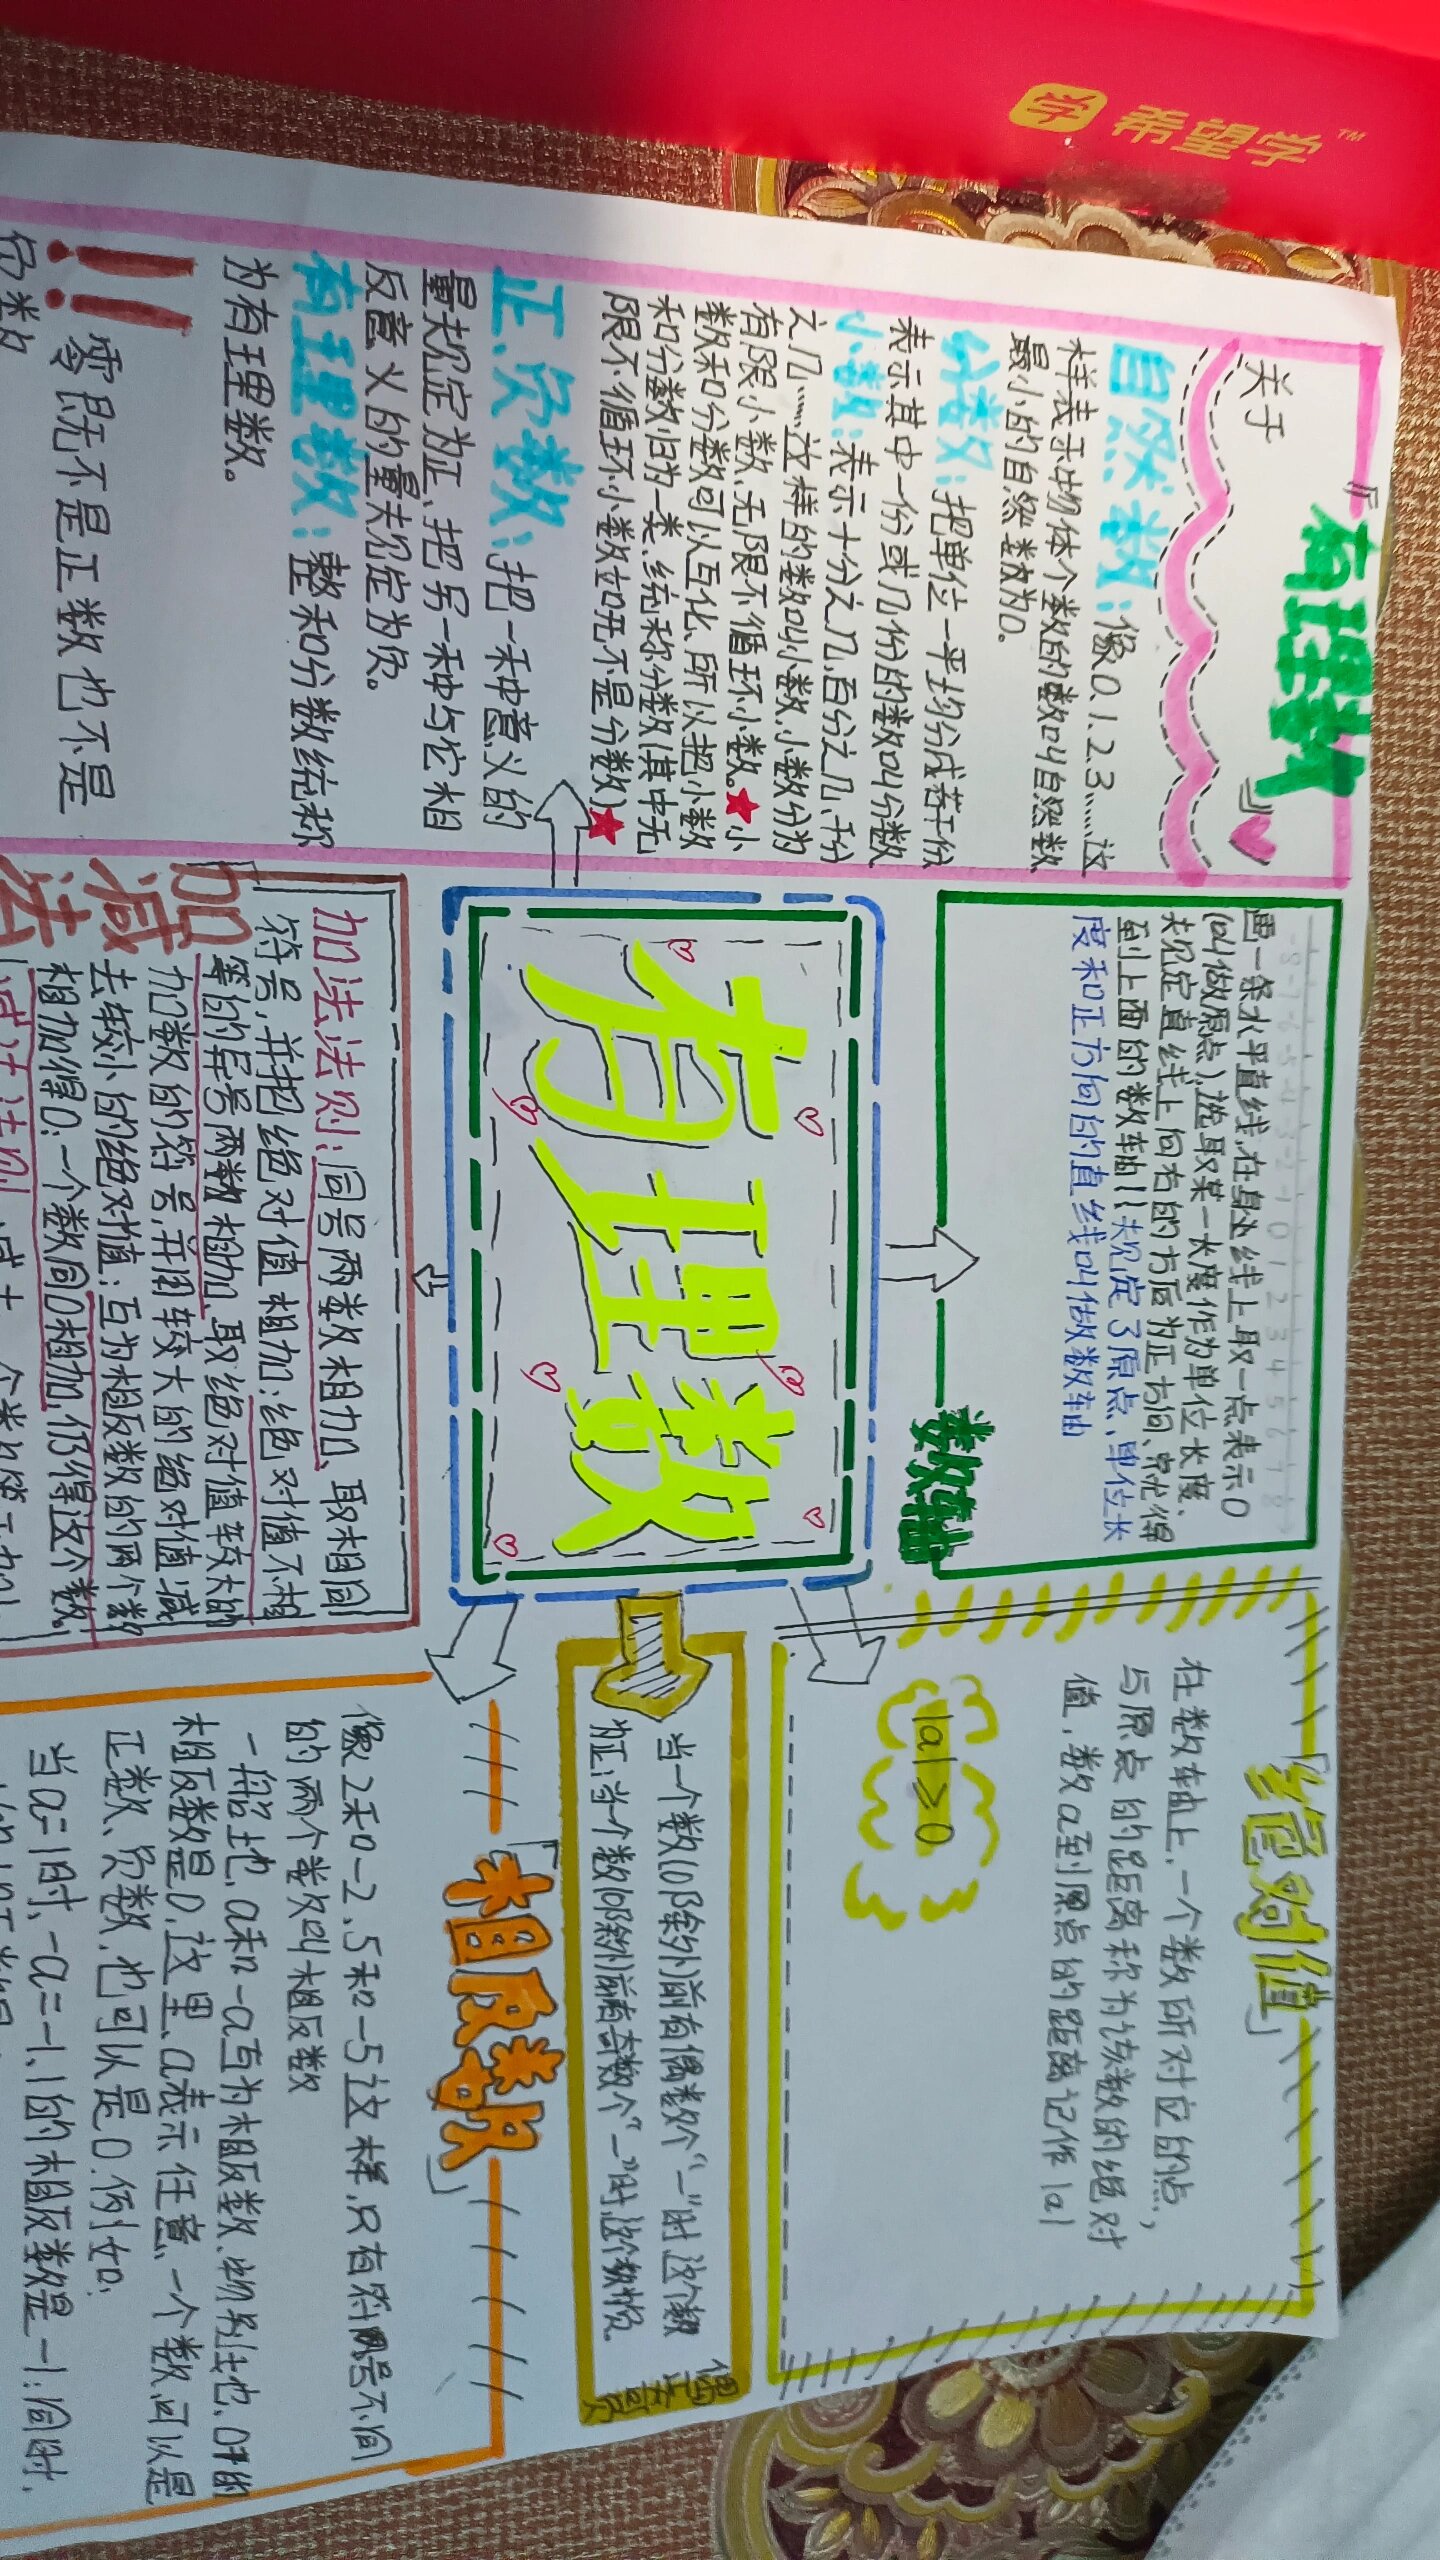 希望学™
关于
『有理数』
自然数:像0、1、2、3……这
样表示物体个数的数叫自然数
最小的自然数为0。
分数:把单位一平均分成若干份
表示其中一份或几份的数叫分数
小数:表示十分之几、百分之几、千分
之几……这样的数叫小数,小数分为
有限小数、无限不循环小数。★小
数和分数可以互化,所以把小数
和分数归为一类,统称分数(其中无
限不循环小数如π不是分数)★
正、负数:把一种意义的
量规定为正、把另一种与它相
反意义的量规定为负。
有理数:整和分数统称
为有理数。
!!零既不是正数也不是
负数
有理数
-8 -7 -6 -5 -4 -3 -2 -1 0 1 2 3 4 5 6 7 8
画一条水平直线,在直线上取一点表示0
(叫做原点),选取某一长度作为单位长度、
规定直线上向右的方向为正方向、就得
到上面的数轴((规定了原点、单位长
度和正方向的直线叫做数轴
数轴
「绝对值」
在数轴上,一个数所对应的点,
与原点的距离称为该数的绝对
值,数a到原点的距离记作|a|
|a|≥0
当一个数(0除外)前有偶数个“-”时,这个数
为正;当一个数(0除外)前有奇数个“-”时,这个数为负.
偶正奇负
加减法
加法法则:同号两数相加、取相同
符号,并把绝对值相加;绝对值不相
等的异号两数相加、取绝对值较大的
加数的符号,并用较大的绝对值减
去较小的绝对值;互为相反数的两个数
相加得0;一个数同0相加,仍得这个数.
减法法则:减去一个数相等于加
「相反数」
像2和-2、5和-5这样,只有符号不同
的两个数叫相反数
一般地,a和-a互为相反数、特别地,0的
相反数是0.这里、a表示任意一个数、可以是
正数、负数、也可以是0.例如:
当a=1时、-a=-1、1的相反数是-1;同时、